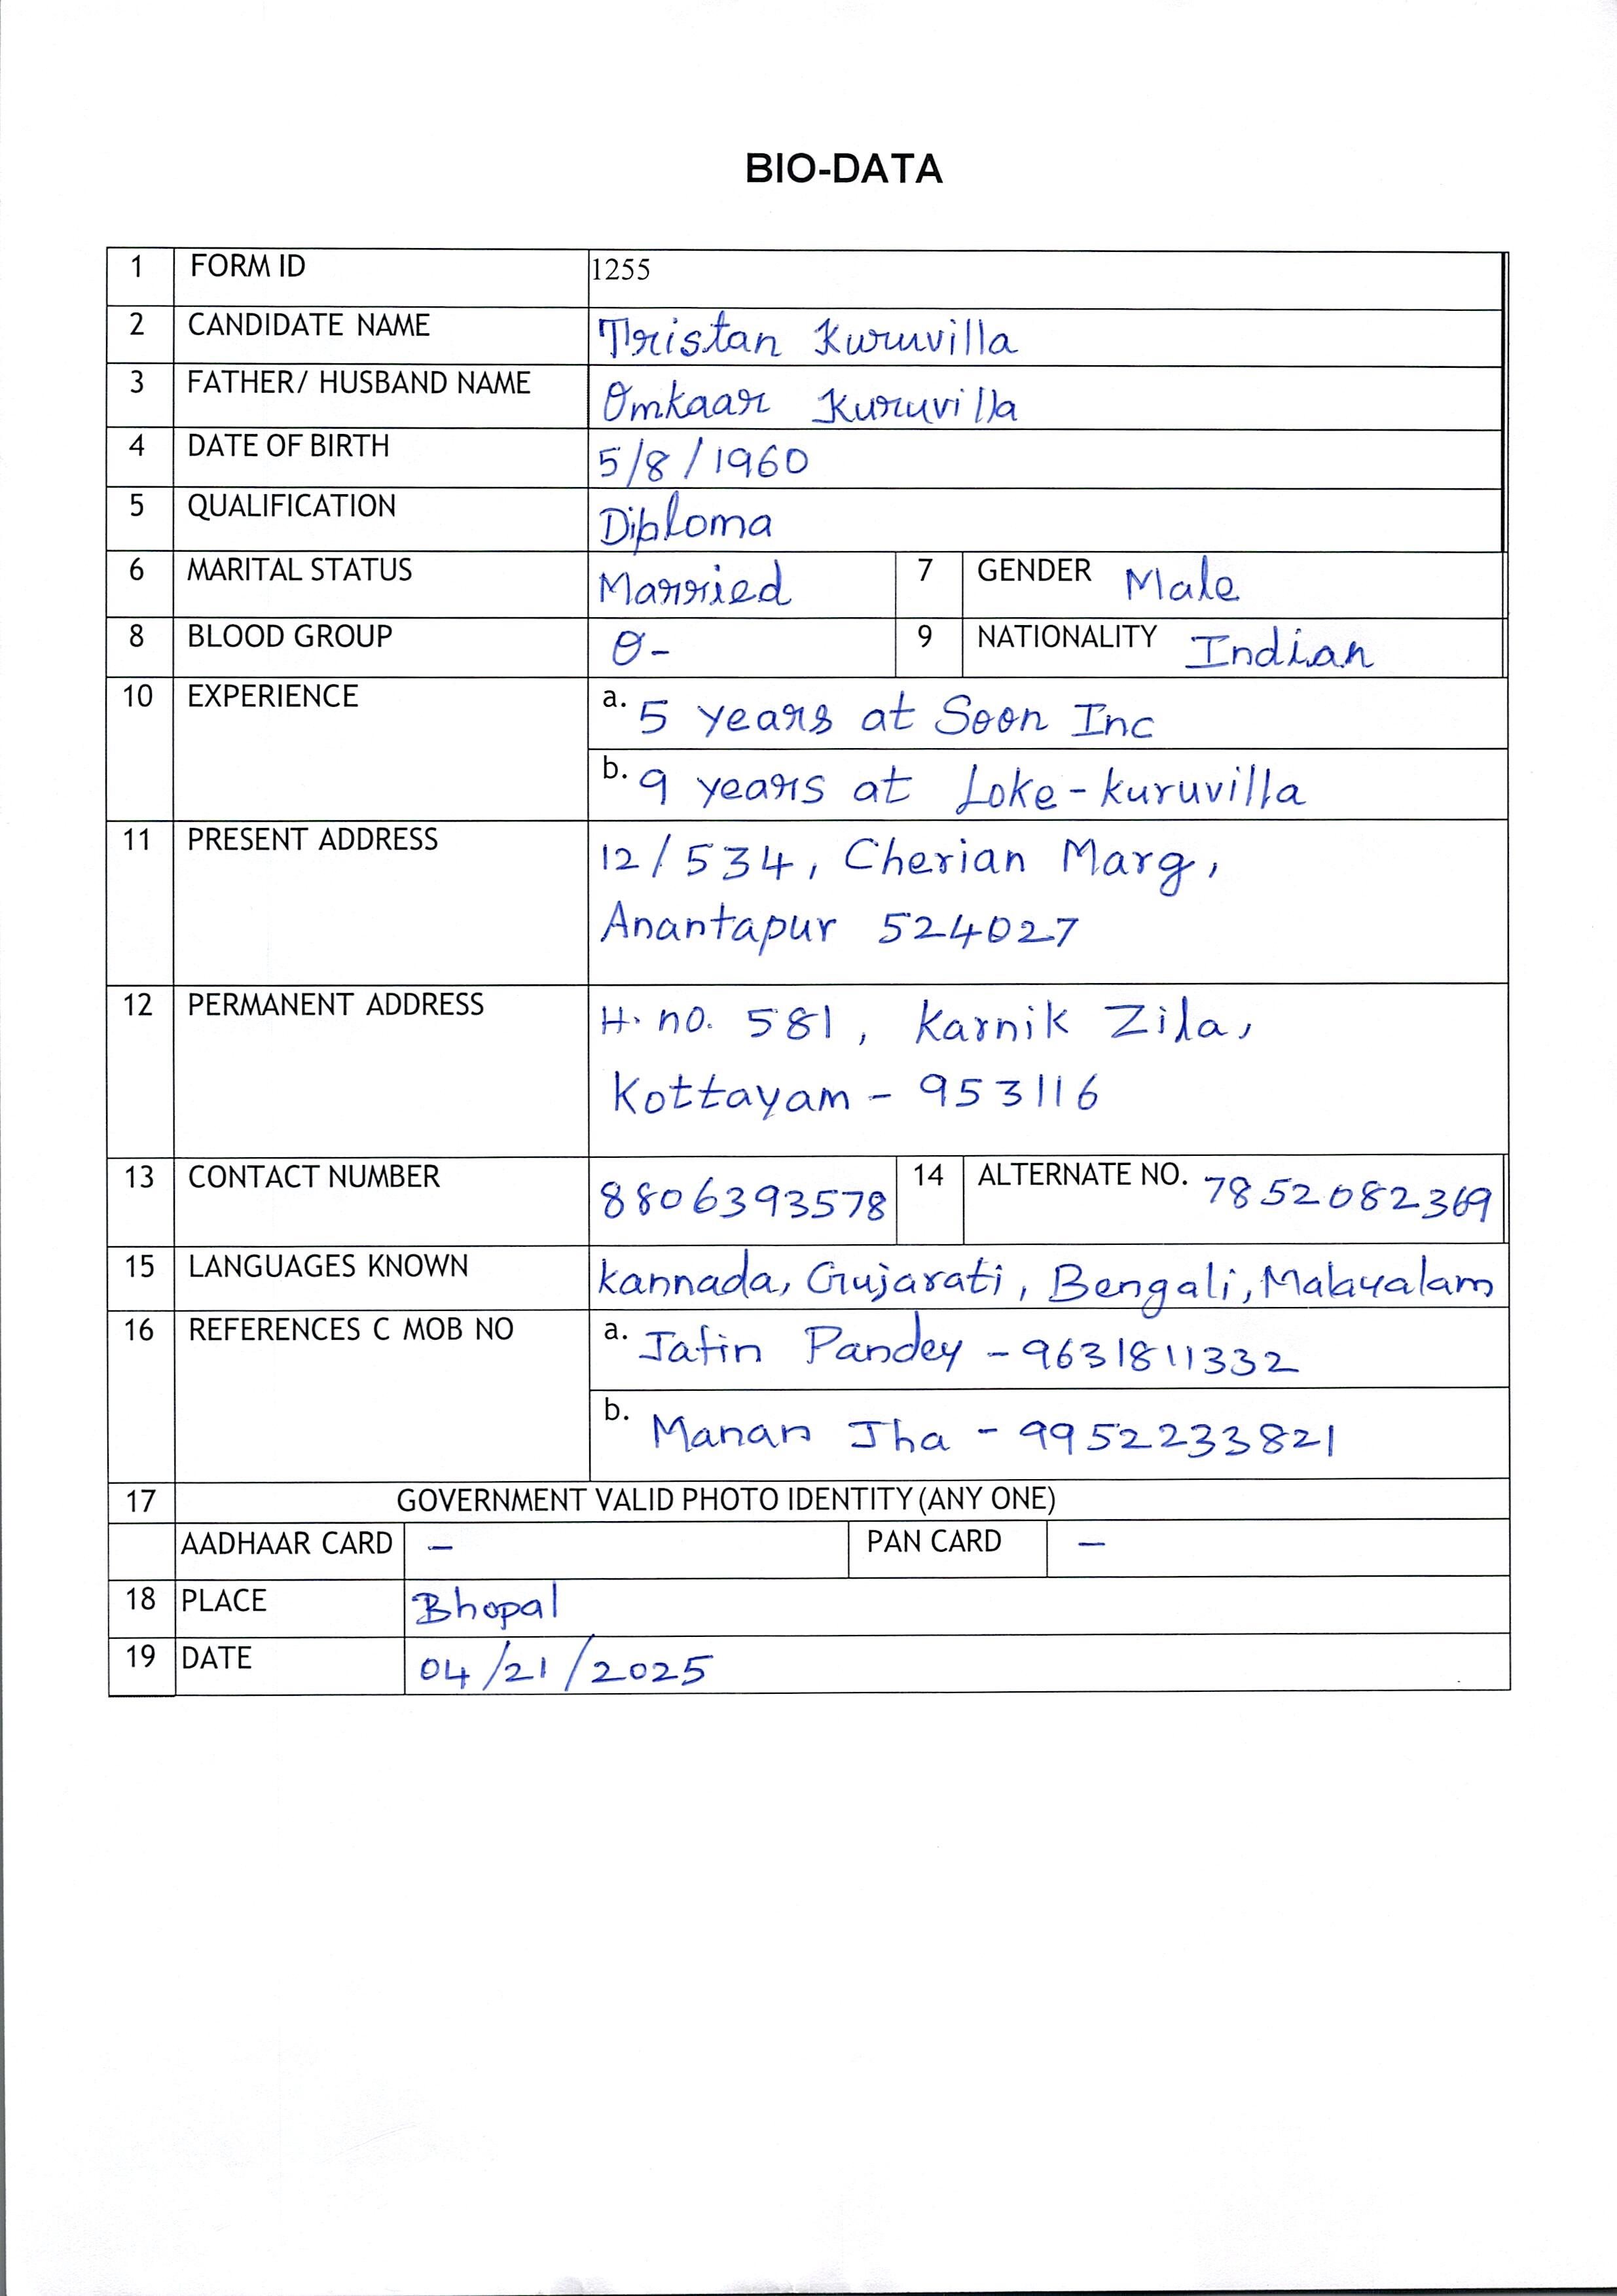 BIO-DATA
1 FORM ID 1255
2 CANDIDATE NAME Tristan Kuruvilla
3 FATHER/ HUSBAND NAME Omkaar Kuruvilla
4 DATE OF BIRTH 5/8/1960
5 QUALIFICATION Diploma
6 MARITAL STATUS Married 7 GENDER Male
8 BLOOD GROUP O- 9 NATIONALITY Indian
10 EXPERIENCE a. 5 years at Soon Inc
b. 9 years at Loke-kuruvilla
11 PRESENT ADDRESS 12/534, Cherian Marg,
Anantapur 524027
12 PERMANENT ADDRESS H. no. 581, Karnik Zila,
Kottayam - 953116
13 CONTACT NUMBER 8806393578 14 ALTERNATE NO. 7852082369
15 LANGUAGES KNOWN Kannada, Gujarati, Bengali, Malayalam
16 REFERENCES C MOB NO a. Jatin Pandey - 9631811332
b. Manan Jha - 9952233821
17 GOVERNMENT VALID PHOTO IDENTITY (ANY ONE)
AADHAAR CARD - PAN CARD -
18 PLACE Bhopal
19 DATE 04/21/2025